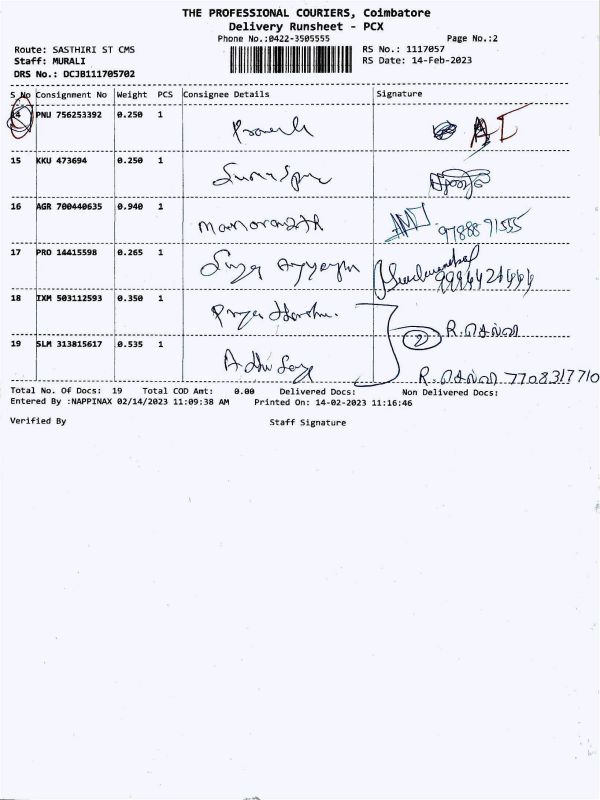 THE PROFESSIONAL COURIERS, Coimbatore
Delivery Runsheet - PCX
Phone No.:0422-3505555 Page No.:2
Route: SASTHIRI ST CMS RS No.: 1117057
Staff: MURALI RS Date: 14-Feb-2023
DRS No.: DCJB111705702
S No Consignment No Weight PCS Consignee Details Signature
14 PNU 756253392 0.250 1
15 KKU 473694 0.250 1
16 AGR 700440635 0.940 1 97888 91555
17 PRO 14415598 0.265 1
18 IXM 503112593 0.350 1 Priya
19 SLM 313815617 0.535 1 2 R.
R. 7708317710
Total No. Of Docs: 19 Total COD Amt: 0.00 Delivered Docs: Non Delivered Docs:
Entered By :NAPPINAX 02/14/2023 11:09:38 AM Printed On: 14-02-2023 11:16:46
Verified By Staff Signature